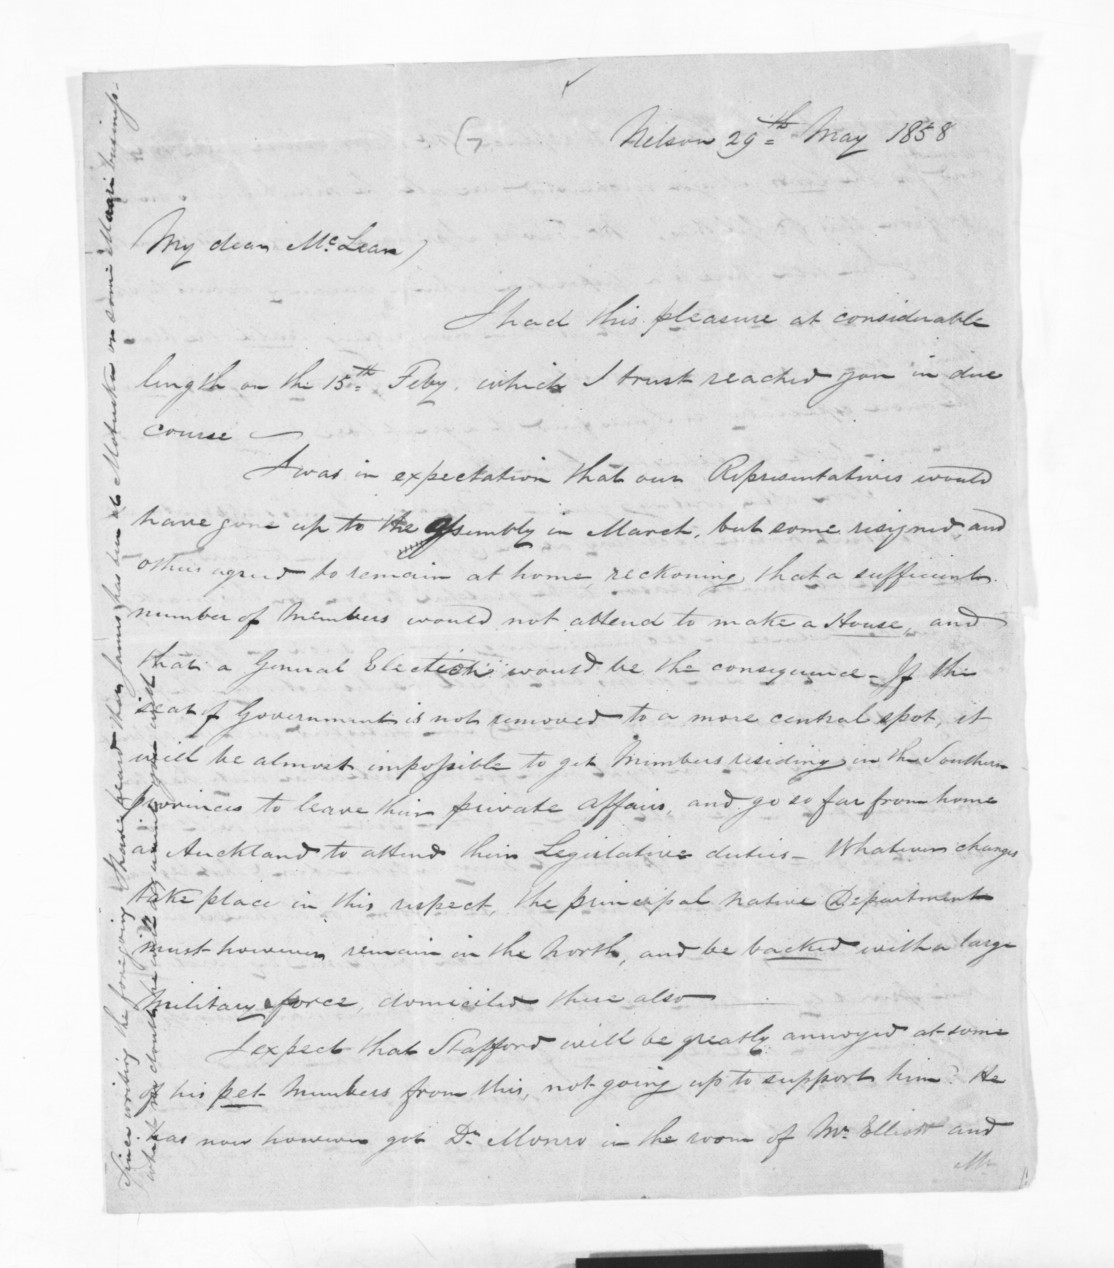 Nelson 29th May 1858
My dear McLean,
I had this pleasure at considerable
length on the 15th Feby. which I trust reached you in due
course —
I was in expectation that our Representatives would
have gone up to the Assembly in March, but some resigned and
others agreed to remain at home, reckoning that a sufficient
number of Members would not attend to make a House, and
that a General Election would be the consequence - If the
seat of Government is not removed to a more central spot, it
will be almost impossible to get Members residing in the Southern
provinces to leave their private affairs, and go so far from home
as Auckland to attend their Legislative duties - Whatever changes
take place in this respect, the principal native Department
must however remain in the North, and be backed with a large
Military force, domiciled there also —
I expect that Stafford will be greatly annoyed at some
of his pet Members from this, not going up to support him. He
has now however got Dr. Monro in the room of Mr. Elliott and
Mr
Since writing the foregoing I have heard that James has been at Motueka on some Maori business -
which no doubt he will acquaint you with